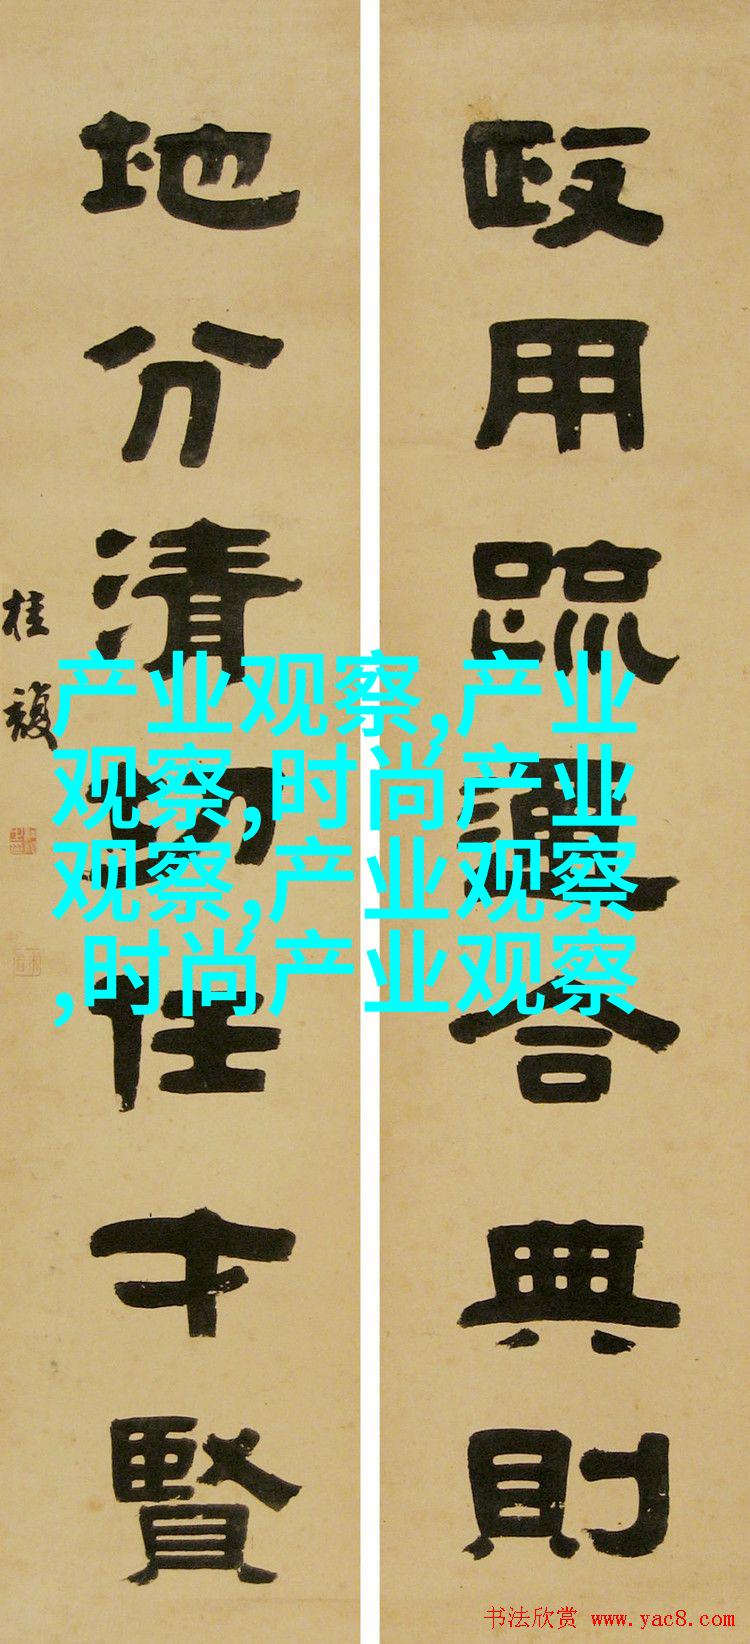 政用疏通合典則
地分清切任才賢
桂馥
产业观察,产业
观察,时尚产业
观察,产业观察
,时尚产业观察
书法欣赏 www.yac8.com